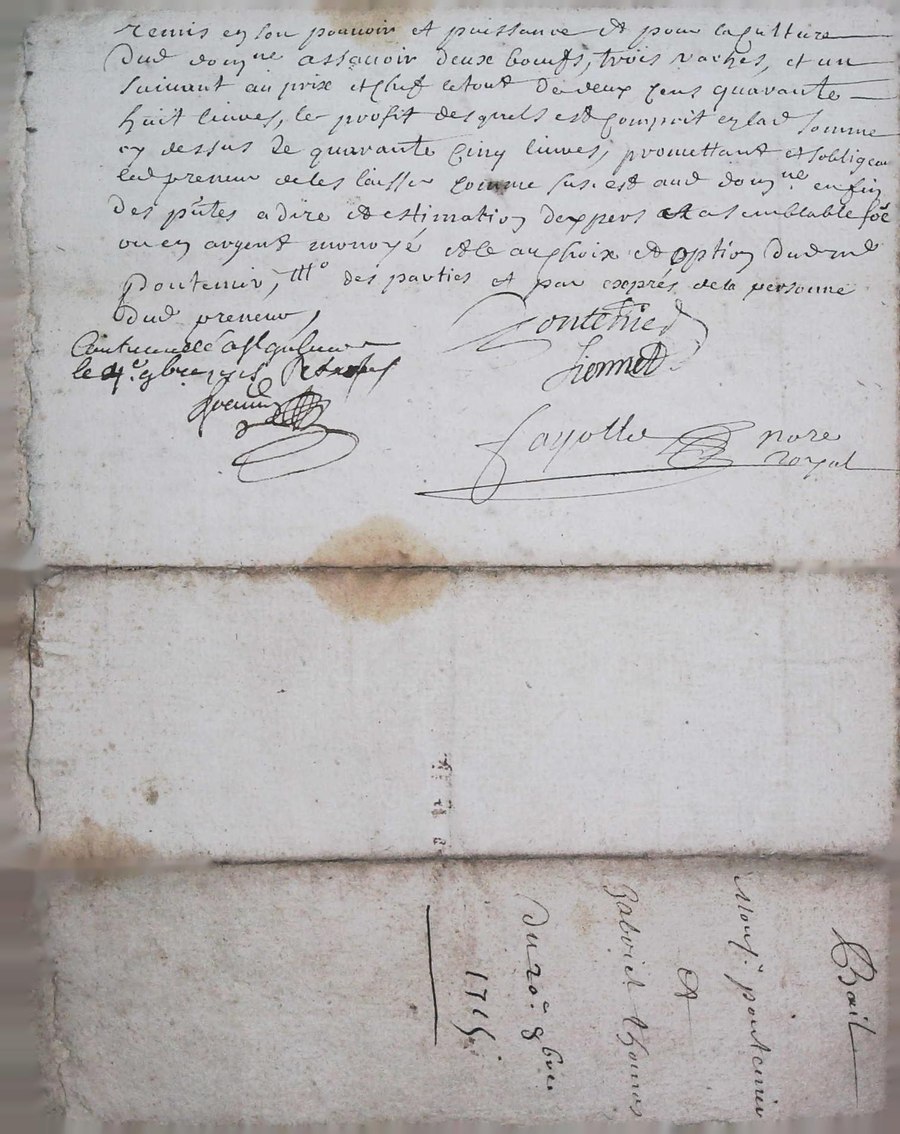 remis en son pouvoir et puissance et pour la culture
dud domne assavoir deux bœufs, trois vaches, et un
suivant au prix et chef le tout de deux cens quarante
huit livres, le profit desquels est compris en lad somme
cy dessus de quarante cinq livres, promettant et sobligeant
led preneur de les laisser comme sus est aud domne. en fin
des pntes a dire et estimation dexpers et a semblable
ou en argent monoyé et le au choix et option dud
Pontenier, des parties et par exprés de la personne
dud preneur,
Pontenier
le 4e. 9bre
Fayolle nore
royal
Bail
Monsr. pontenier
A
Gabriel thomas
Du 20e 8bre
171